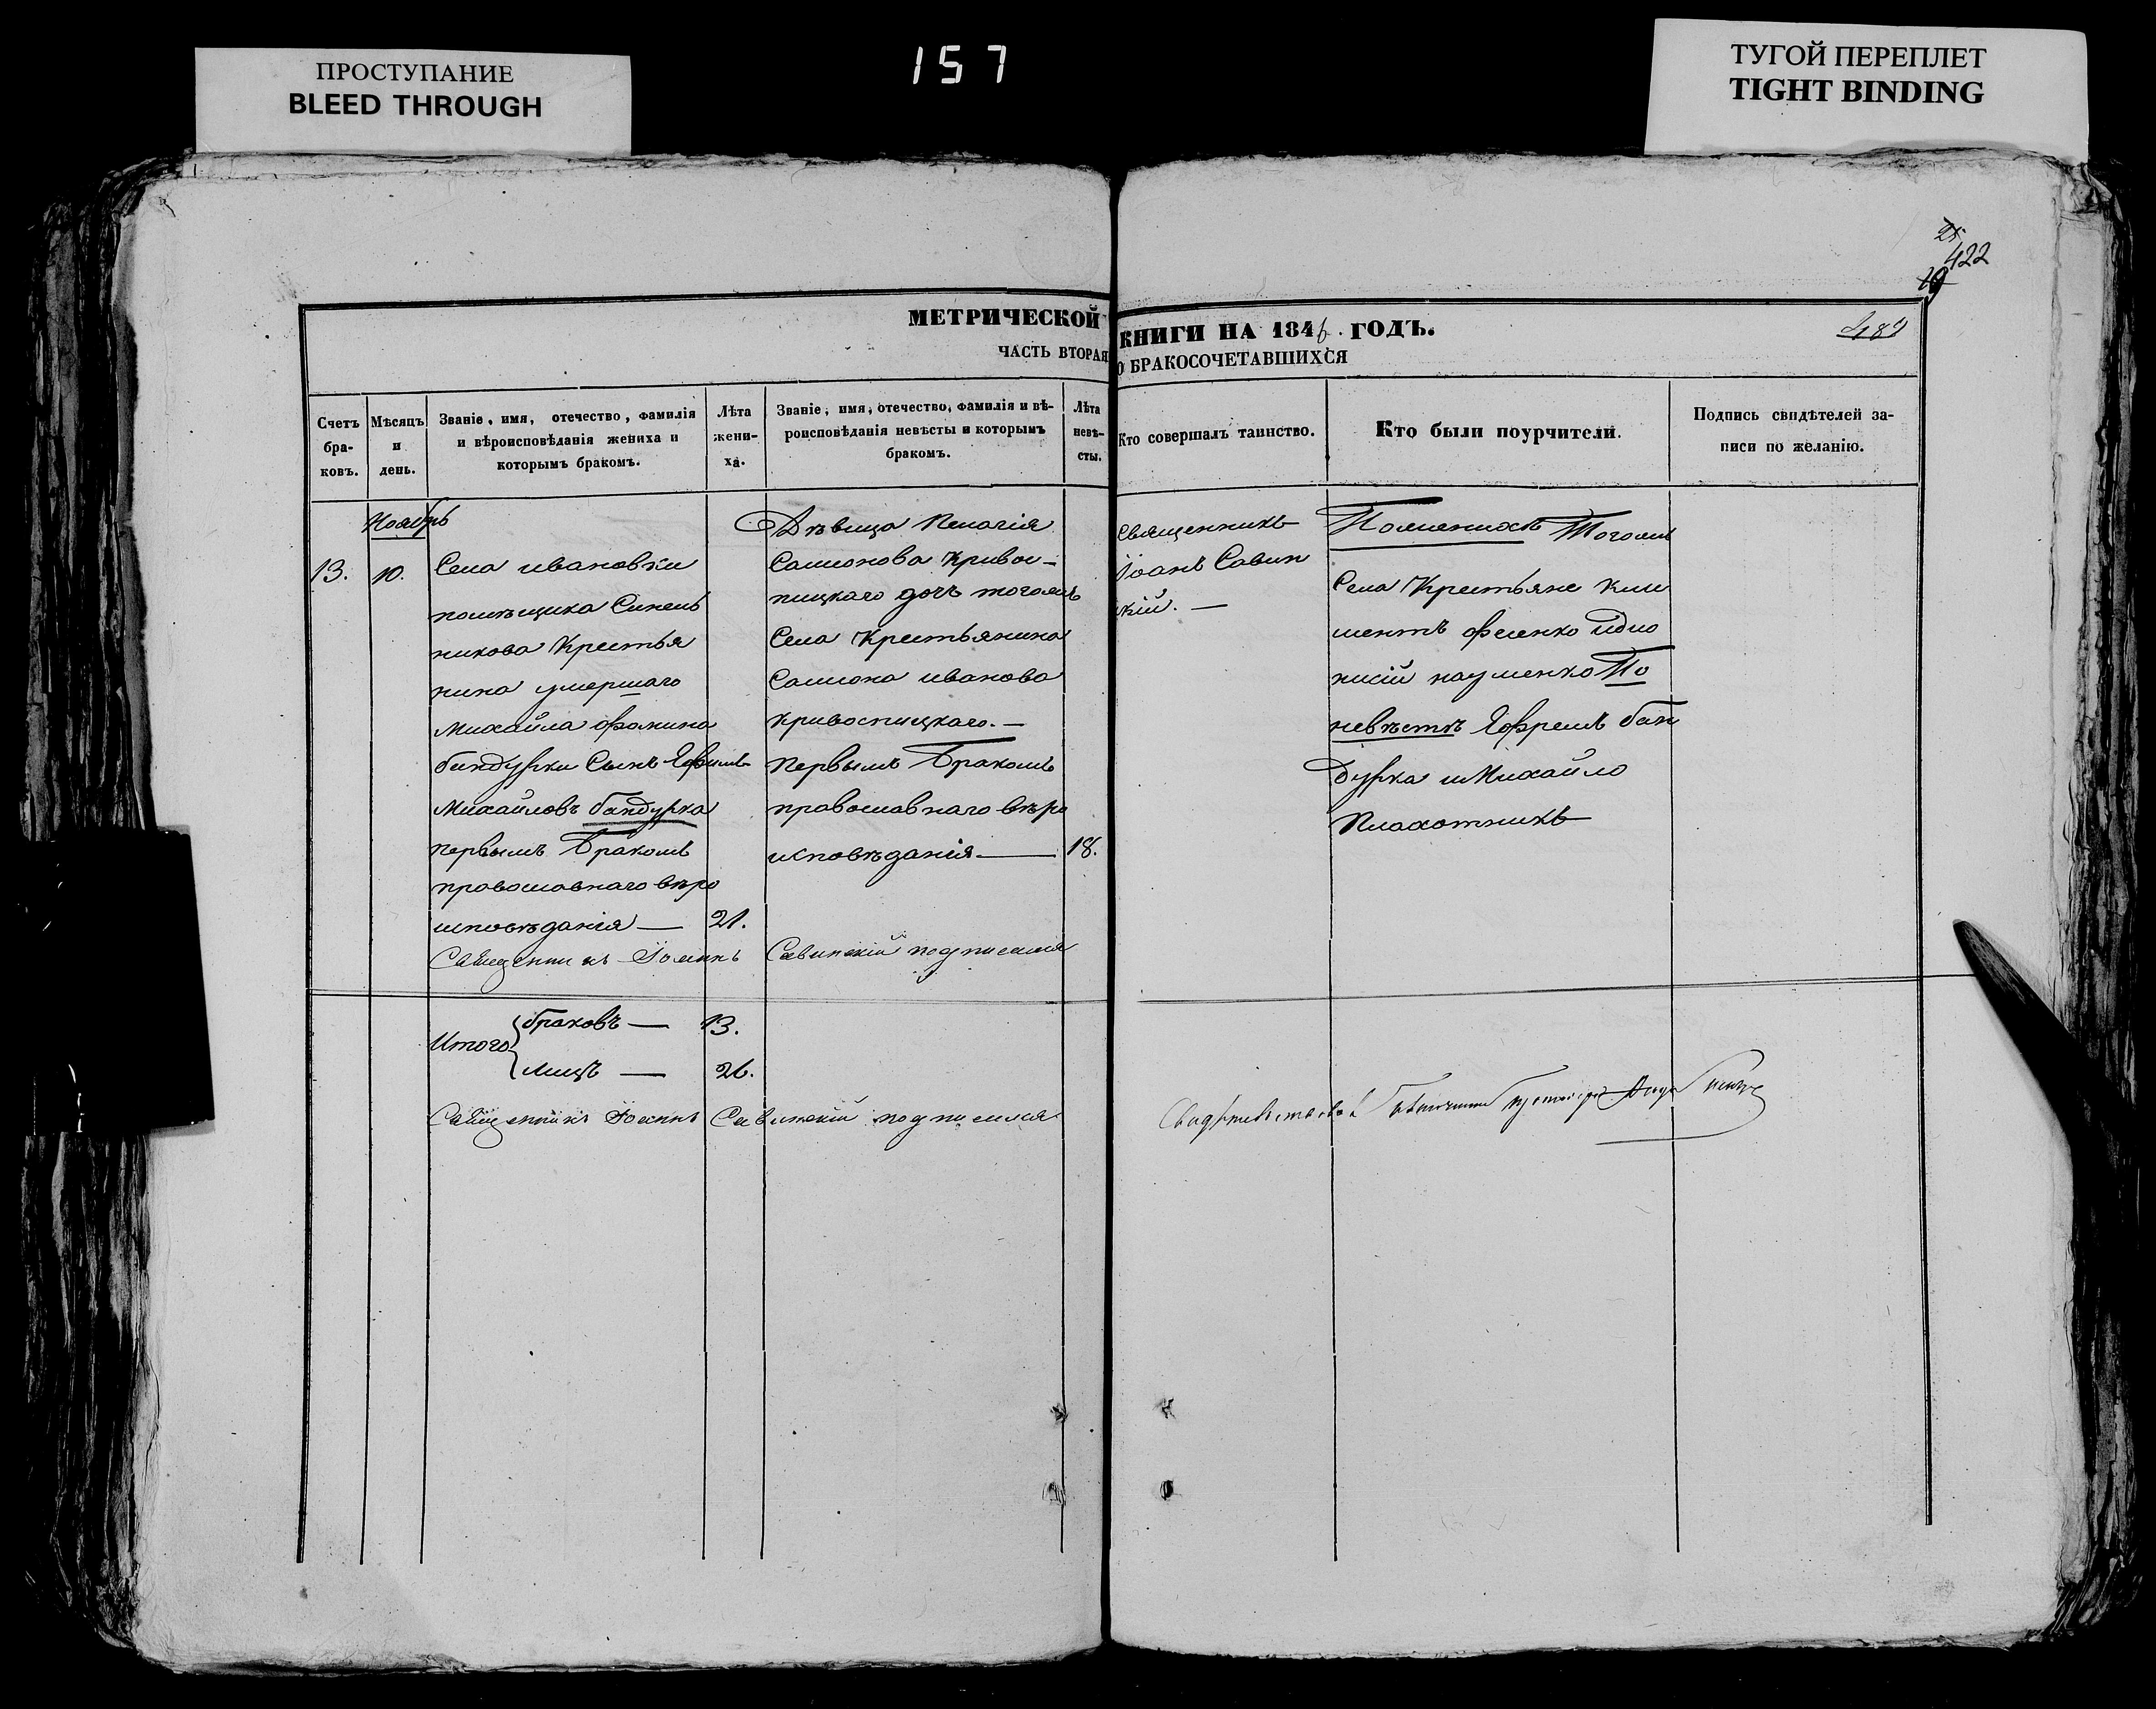 ПРОСТУПАНИЕ
BLEED THROUGH
157
ТУГОЙ ПЕРЕПЛЕТ
TIGHT BINDING
422
МЕТРИЧЕСКОЙ КНИГИ НА 1846 ГОДЪ.
ЧАСТЬ ВТОРАЯ О БРАКОСОЧЕТАВШИХСЯ
Счетъ
бра-
ковъ.
Мѣсяцъ
и
день.
Званіе, имя, отечество, фамилія
и вѣроисповѣданія жениха и
которымъ бракомъ.
Лѣта
жени-
ха.
Званіе, имя, отечество, фамилія и вѣ-
роисповѣданія невѣсты и которымъ
бракомъ.
Лѣта
невѣ-
сты.
Кто совершалъ таинство.
Кто были поурчители.
Подпись свидѣтелей за-
писи по желанію.
Ноябрь
13.
10.
Села ивановки
помѣщика Синель
никова Крестья
нина умершаго
Михайла Фомина
бандурки Сынъ
Михайловъ бандурка
первымъ Бракомъ
православнаго вѣро
исповѣданія — 21.
Священникъ Іоаннъ Савинскій подписался
Дѣвица Пелагія
Самсонова Кривос-
пицкаго дочъ тогожъ
Села Крестьянина
Самсона иванова
Кривоспицкаго. —
Первымъ Бракомъ
православнаго вѣро
исповѣданія — 18.
Священникъ
Іоанъ Савин
скій. —
По женихѣ Тогожъ
Села Крестьяне Кли
ментъ Фесенко идио
нисій науменко По
невѣстѣ Ефремъ бан
дурка и Михайло
Плахотникъ
Итого
браковъ — 13.
лицъ — 26.
Священникъ Іоаннъ Савинскій подписался
Свидѣтельствовалъ